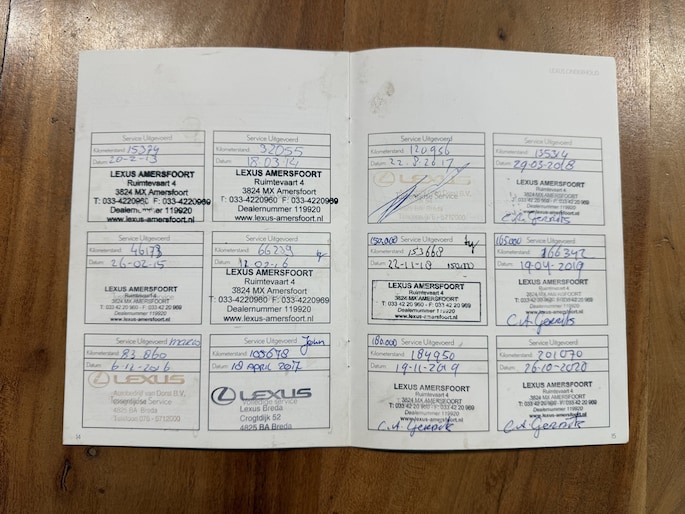 Service Uitgevoerd
Kilometerstand: 15374
Datum: 20-2-13
LEXUS AMERSFOORT
Ruimtevaart 4
3824 MX Amersfoort
T: 033-4220960 F: 033-4220969
Dealernummer 119920
www.lexus-amersfoort.nl
Service Uitgevoerd
Kilometerstand: 32055
Datum: 18.03.14
LEXUS AMERSFOORT
Ruimtevaart 4
3824 MX Amersfoort
T: 033-4220960 F: 033-4220969
Dealernummer 119920
www.lexus-amersfoort.nl
Service Uitgevoerd
Kilometerstand: 46173
Datum: 26-02-15
LEXUS AMERSFOORT
Ruimtevaart 4
3824 MX AMERSFOORT
T: 033 42 20 960 - F: 033 42 20 969
Dealernummer 119920
www.lexus-amersfoort.nl
Service Uitgevoerd
Kilometerstand: 66239
Datum: 12-02-16
LEXUS AMERSFOORT
Ruimtevaart 4
3824 MX Amersfoort
T: 033-4220960 F: 033-4220969
Dealernummer 119920
www.lexus-amersfoort.nl
Service Uitgevoerd
Kilometerstand: 83 860
Datum: 6-12-2016
LEXUS
Aardenbij van Dorst B.V.
4825 BA Breda
Service Uitgevoerd John
Kilometerstand:
Datum: 18 APRIL 2017
LEXUS
Volledige service
Lexus Breda
Crogtdijk 52
4825 BA Breda
14
LEXUS ONDERHOUD
Service Uitgevoerd
Kilometerstand: 120956
Datum: 22.8.2017
LEXUS
Service Uitgevoerd
Kilometerstand: 135314
Datum: 29-03-2018
LEXUS AMERSFOORT
Ruimtevaart 4
3824 MX AMERSFOORT
T: 033 42 20 960 - F: 033 42 20 969
Dealernummer 119920
www.lexus-amersfoort.nl
150.000 Service Uitgevoerd
Kilometerstand: 153668
Datum: 22-11-18 150.000
LEXUS AMERSFOORT
Ruimtevaart 4
3824 MX AMERSFOORT
T: 033 42 20 960 - F: 033 42 20 969
Dealernummer 119920
www.lexus-amersfoort.nl
165.000 Service Uitgevoerd
Kilometerstand: 166342
Datum: 19-04-2019
LEXUS AMERSFOORT
Ruimtevaart 4
3824 MX AMERSFOORT
T: 033 42 20 960 - F: 033 42 20 969
Dealernummer 119920
www.lexus-amersfoort.nl
180.000 Service Uitgevoerd
Kilometerstand: 184950
Datum: 19-11-2019
LEXUS AMERSFOORT
Ruimtevaart 4
3824 MX AMERSFOORT
T: 033 42 20 960 - F: 033 42 20 969
Dealernummer 119920
www.lexus-amersfoort.nl
Service Uitgevoerd
Kilometerstand: 201070
Datum: 26-10-2020
LEXUS AMERSFOORT
Ruimtevaart 4
3824 MX AMERSFOORT
T: 033 42 20 960 - F: 033 42 20 969
Dealernummer 119920
www.lexus-amersfoort.nl
15